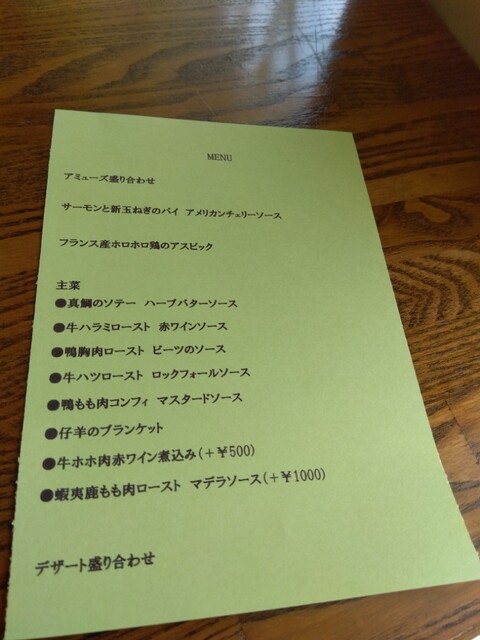 MENU
アミューズ盛り合わせ
サーモンと新玉ねぎのパイ アメリカンチェリーソース
フランス産ホロホロ鶏のアスピック
主菜
●真鯛のソテー ハーブバターソース
●牛ハラミロースト 赤ワインソース
●鴨胸肉ロースト ビーツのソース
●牛ハツロースト ロックフォールソース
●鴨もも肉コンフィ マスタードソース
●仔羊のブランケット
●牛ホホ肉赤ワイン煮込み(+¥500)
●蝦夷鹿もも肉ロースト マデラソース(+¥1000)
デザート盛り合わせ